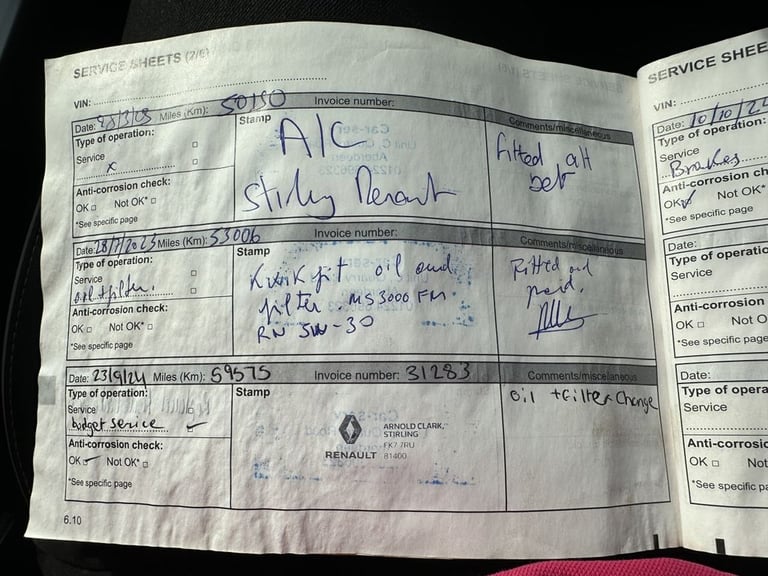 SERVICE SHEETS (2/6)
VIN:
Date: Miles (Km): 50150 Invoice number:
Type of operation:
Service
x
Anti-corrosion check:
OK □ Not OK* □
*See specific page
Stamp
A/C
Comments/miscellaneous
fitted
Date: 28/7/2023 Miles (Km): 53006
Type of operation:
Service
oil + filter.
Anti-corrosion check:
OK □ Not OK* □
*See specific page
Stamp
Kwik fit oil and
filter. MS3000 FM.
RN 5W-30
Comments/miscellaneous
Fitted and
paid.
Date: 23/9/24 Miles (Km): 59575 Invoice number: 31283
Type of operation:
Service
budget service ✓
Anti-corrosion check:
OK ✓ Not OK* □
*See specific page
Stamp
RENAULT
ARNOLD CLARK,
STIRLING
FK7 7RU
81400
Comments/miscellaneous
oil + Filter Change
6.10
SERVICE SHEE
VIN:
Date: 10/10/2
Type of operation:
Service
Brakes
Anti-corrosion ch
OK ✓ Not OK
*See specific page
Date:
Type of operation
Service
Anti-corrosion
OK □ Not O
*See specific pag
Date:
Type of opera
Service
Anti-corrosio
OK □ Not
*See specific pa